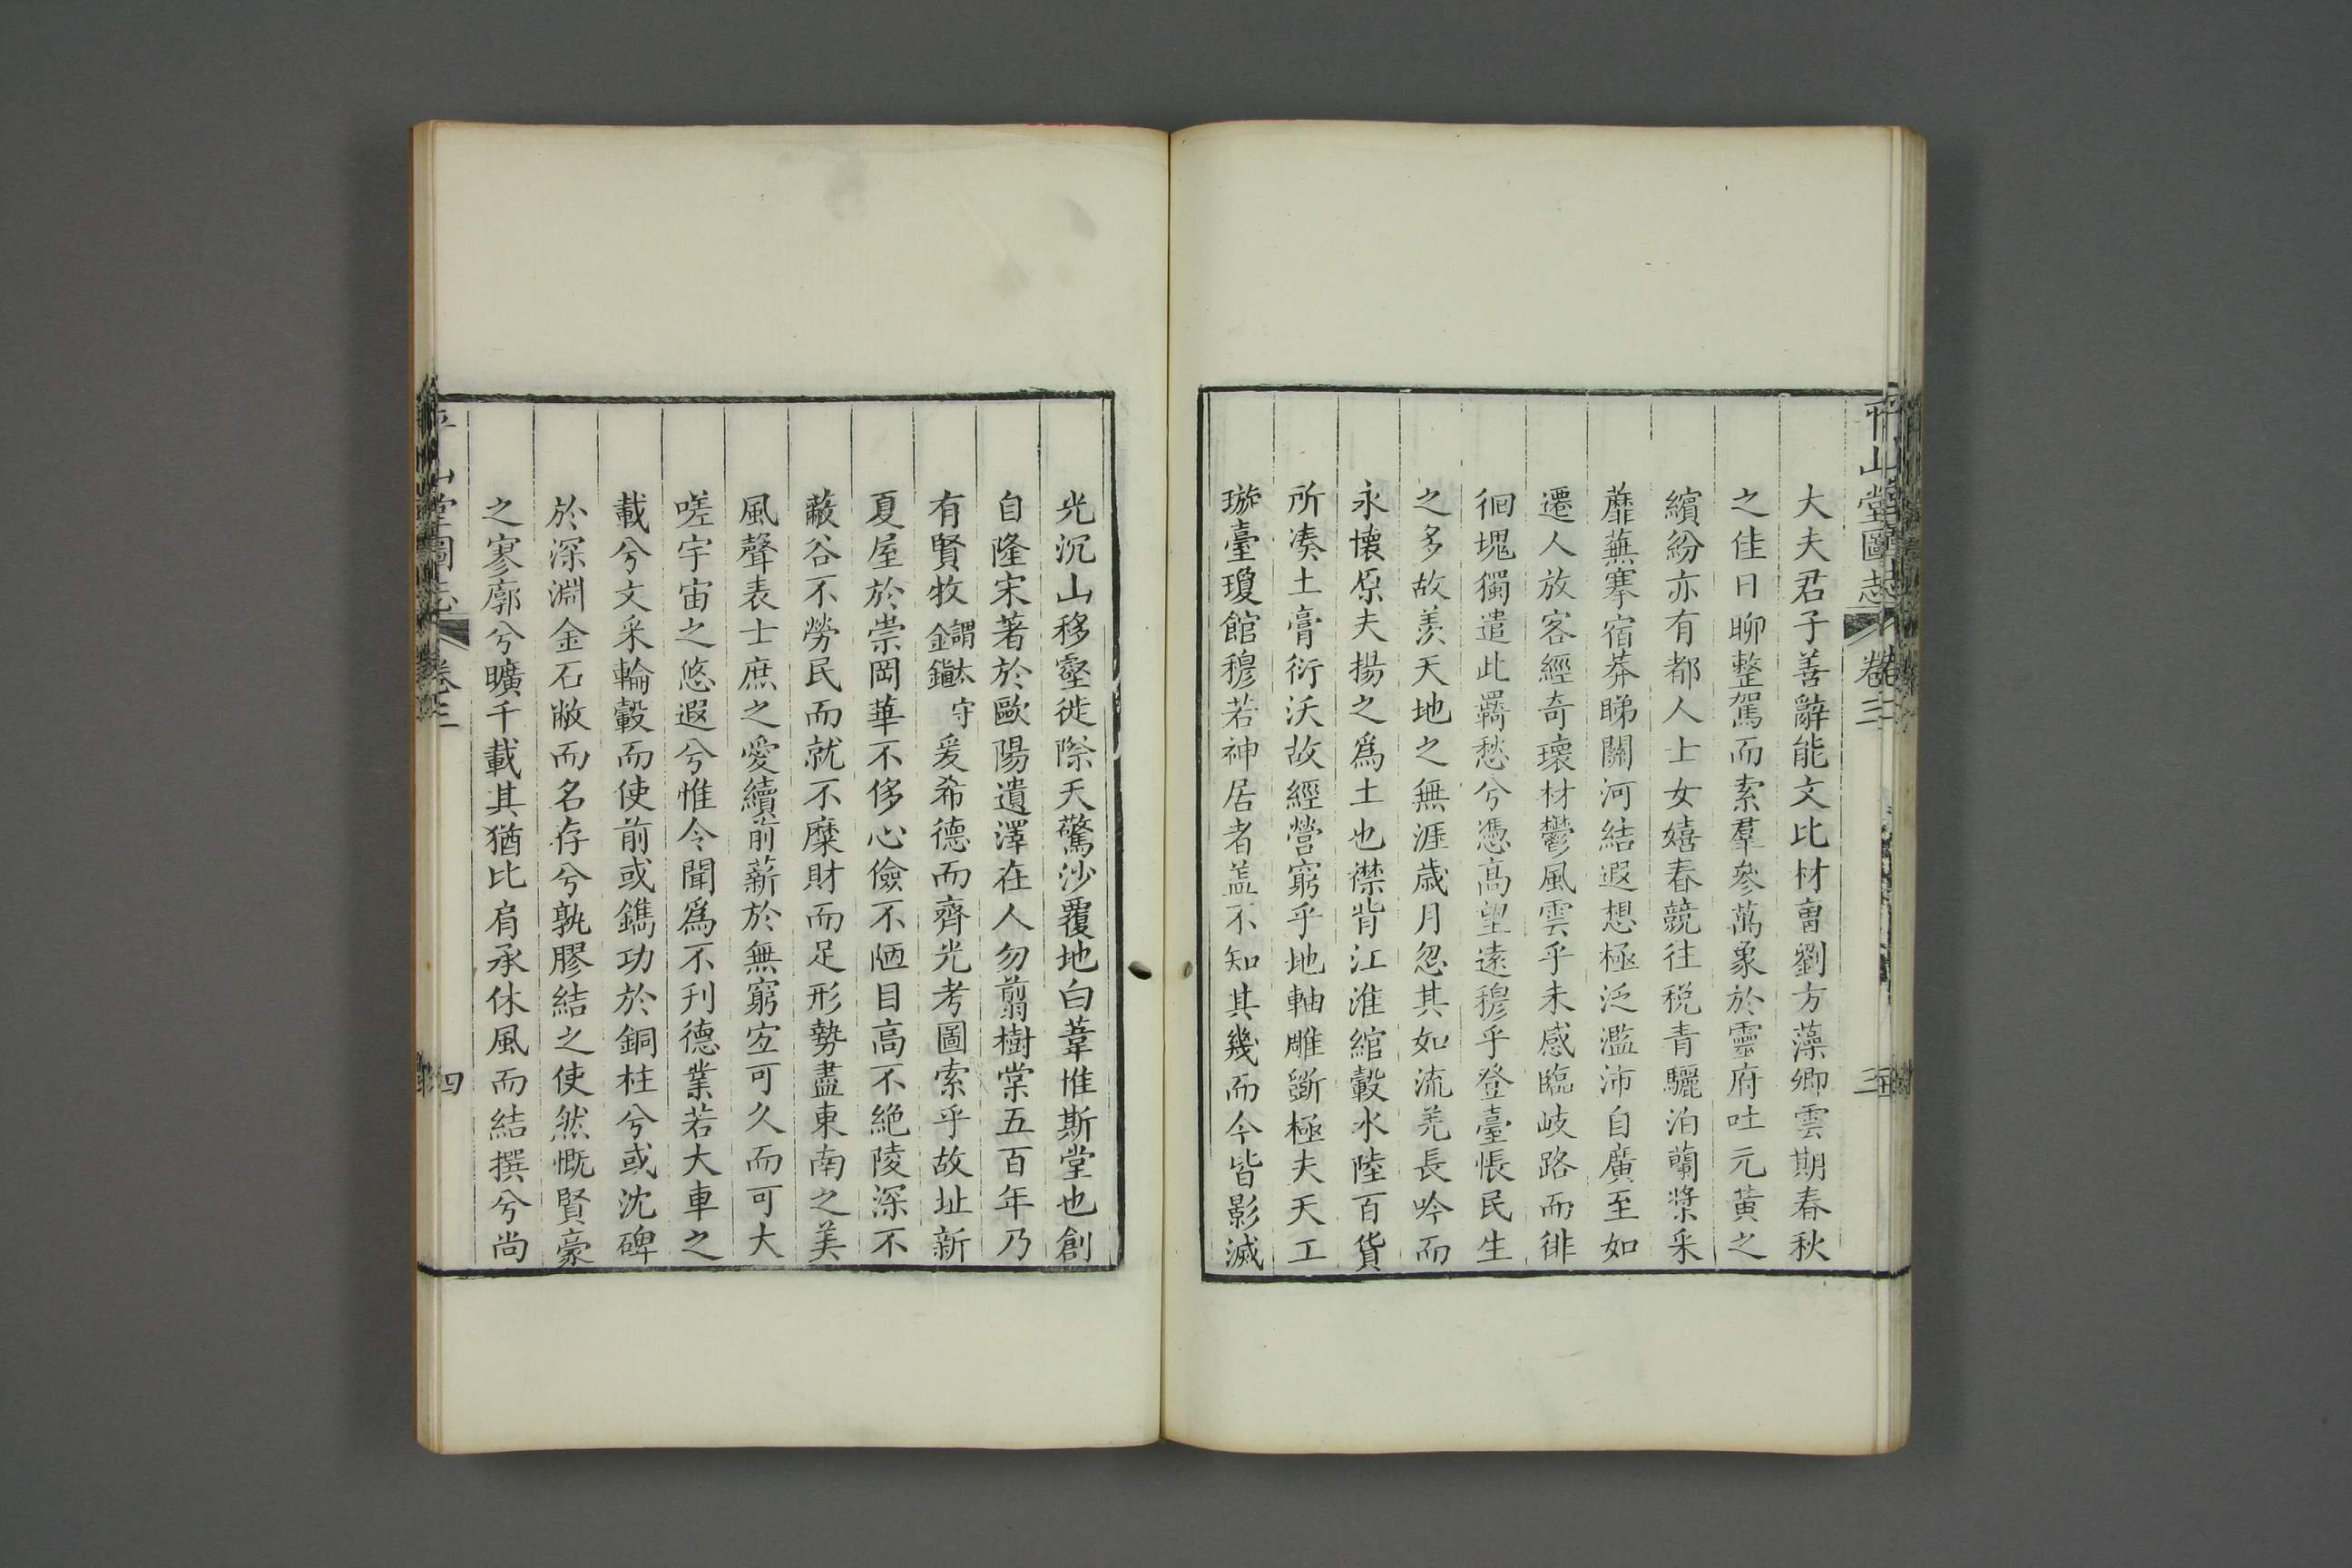 平山堂圖志 卷三 三
大夫君子善辭能文比材曹劉方藻卿雲期春秋
之佳日聊整駕而索羣參萬象於靈府吐元黃之
繽紛亦有都人士女嬉春競往税青驪泊蘭槳采
蘼蕪搴宿莽睇關河結遐想極泛濫沛自廣至如
遷人放客經奇瓌材鬱風雲乎未感臨岐路而徘
徊塊獨遣此羇愁兮憑高望遠穆乎登臺悵民生
之多故羨天地之無涯歲月忽其如流羌長吟而
永懷原夫揚之爲土也襟背江淮綰轂水陸百貨
所凑土膏衍沃故經營窮乎地軸雕斵極夫天工
璇臺瓊館穆若神居者盖不知其幾而今皆影滅
光沉山移壑徙際天驚沙覆地白葦惟斯堂也創
自隆宋著於歐陽遺澤在人勿翦樹棠五百年乃
有賢牧謂太守金鎭爰希德而齊光考圖索乎故址新
夏屋於崇岡華不侈心儉不陋目高不絶陵深不
蔽谷不勞民而就不糜財而足形勢盡東南之美
風聲表士庶之愛續前薪於無窮宐可久而可大
嗟宇宙之悠遐兮惟令聞爲不刋德業若大車之
載兮文采輪轂而使前或鐫功於銅柱兮或沈碑
於深淵金石敝而名存兮孰膠結之使然慨賢豪
之寥廓兮曠千載其猶比肩承休風而結撰兮尚
平山堂圖志 卷三 四